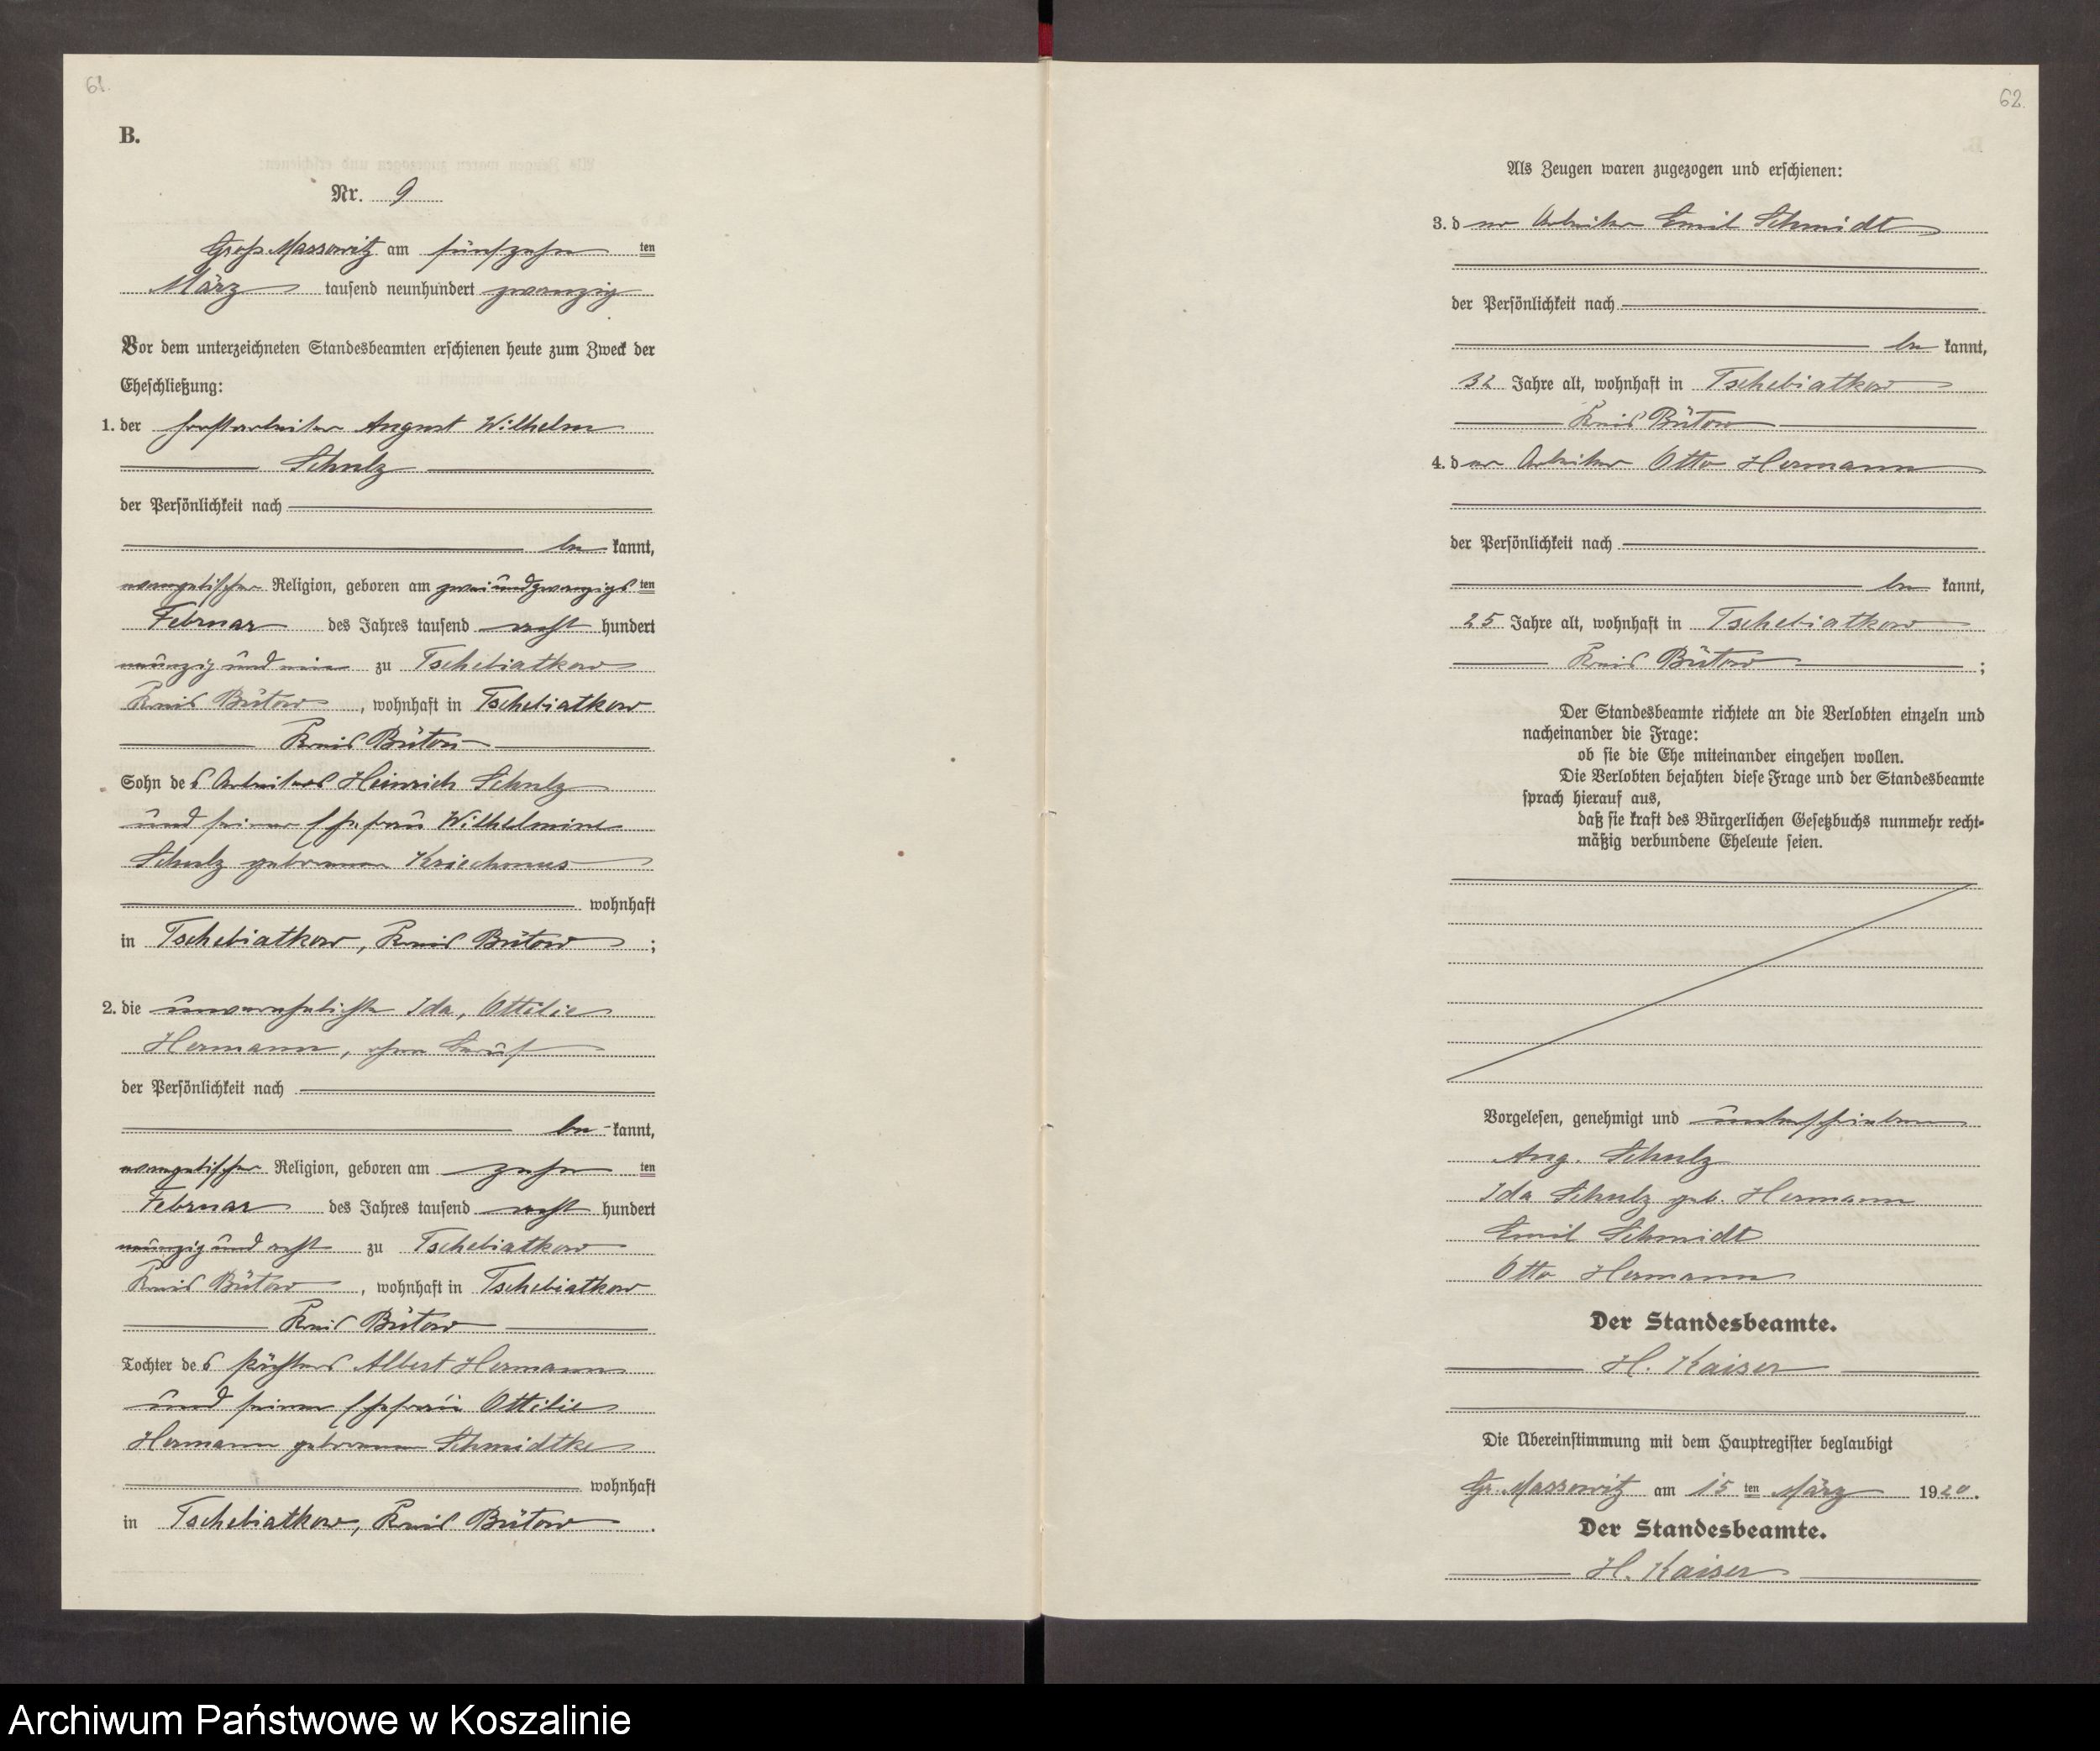 61.
B.
Nr. 9
Groß Massowitz am fünfzehnten
März tausend neunhundert zwanzig
Vor dem unterzeichneten Standesbeamten erschienen heute zum Zweck der
Eheschließung:
1. der Forstarbeiter August Wilhelm
Schulz
der Persönlichkeit nach
bekannt,
evangelischer Religion, geboren am zweiundzwanzigsten
Februar des Jahres tausend acht hundert
neunzig und ein zu Tschebiatkow
Kreis Bütow, wohnhaft in Tschebiatkow
Kreis Bütow
Sohn des Arbeiters Heinrich Schulz
und seiner Ehefrau Wilhelmine
Schulz geborenen
wohnhaft
in Tschebiatkow, Kreis Bütow;
2. die unverehelichte Ida, Ottilie
Hermann, ohne Beruf
der Persönlichkeit nach
bekannt,
evangelischer Religion, geboren am zehnten
Februar des Jahres tausend acht hundert
neunzig und acht zu Tschebiatkow
Kreis Bütow, wohnhaft in Tschebiatkow
Kreis Bütow
Tochter des Pächters Albert Hermann
und seiner Ehefrau Ottilie
Hermann geborenen Schmidtke
wohnhaft
in Tschebiatkow, Kreis Bütow.
62.
Als Zeugen waren zugezogen und erschienen:
3. der Arbeiter Emil Schmidt
der Persönlichkeit nach
bekannt,
32 Jahre alt, wohnhaft in Tschebiatkow
Kreis Bütow
4. der Arbeiter Otto Hermann
der Persönlichkeit nach
bekannt,
25 Jahre alt, wohnhaft in Tschebiatkow
Kreis Bütow;
Der Standesbeamte richtete an die Verlobten einzeln und
nacheinander die Frage:
ob sie die Ehe miteinander eingehen wollen.
Die Verlobten bejahten diese Frage und der Standesbeamte
sprach hierauf aus,
daß sie kraft des Bürgerlichen Gesetzbuchs nunmehr recht-
mäßig verbundene Eheleute seien.
Vorgelesen, genehmigt und unterschrieben
Aug. Schulz
Ida Schulz geb. Hermann
Emil Schmidt
Otto Hermann
Der Standesbeamte.
H. Kaiser
Die Übereinstimmung mit dem Hauptregister beglaubigt
Gr. Massowitz am 15ten März 1920.
Der Standesbeamte.
H. Kaiser
Archiwum Państwowe w Koszalinie